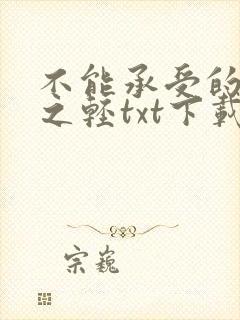 不能承受的
之轻txt下载
宗巍